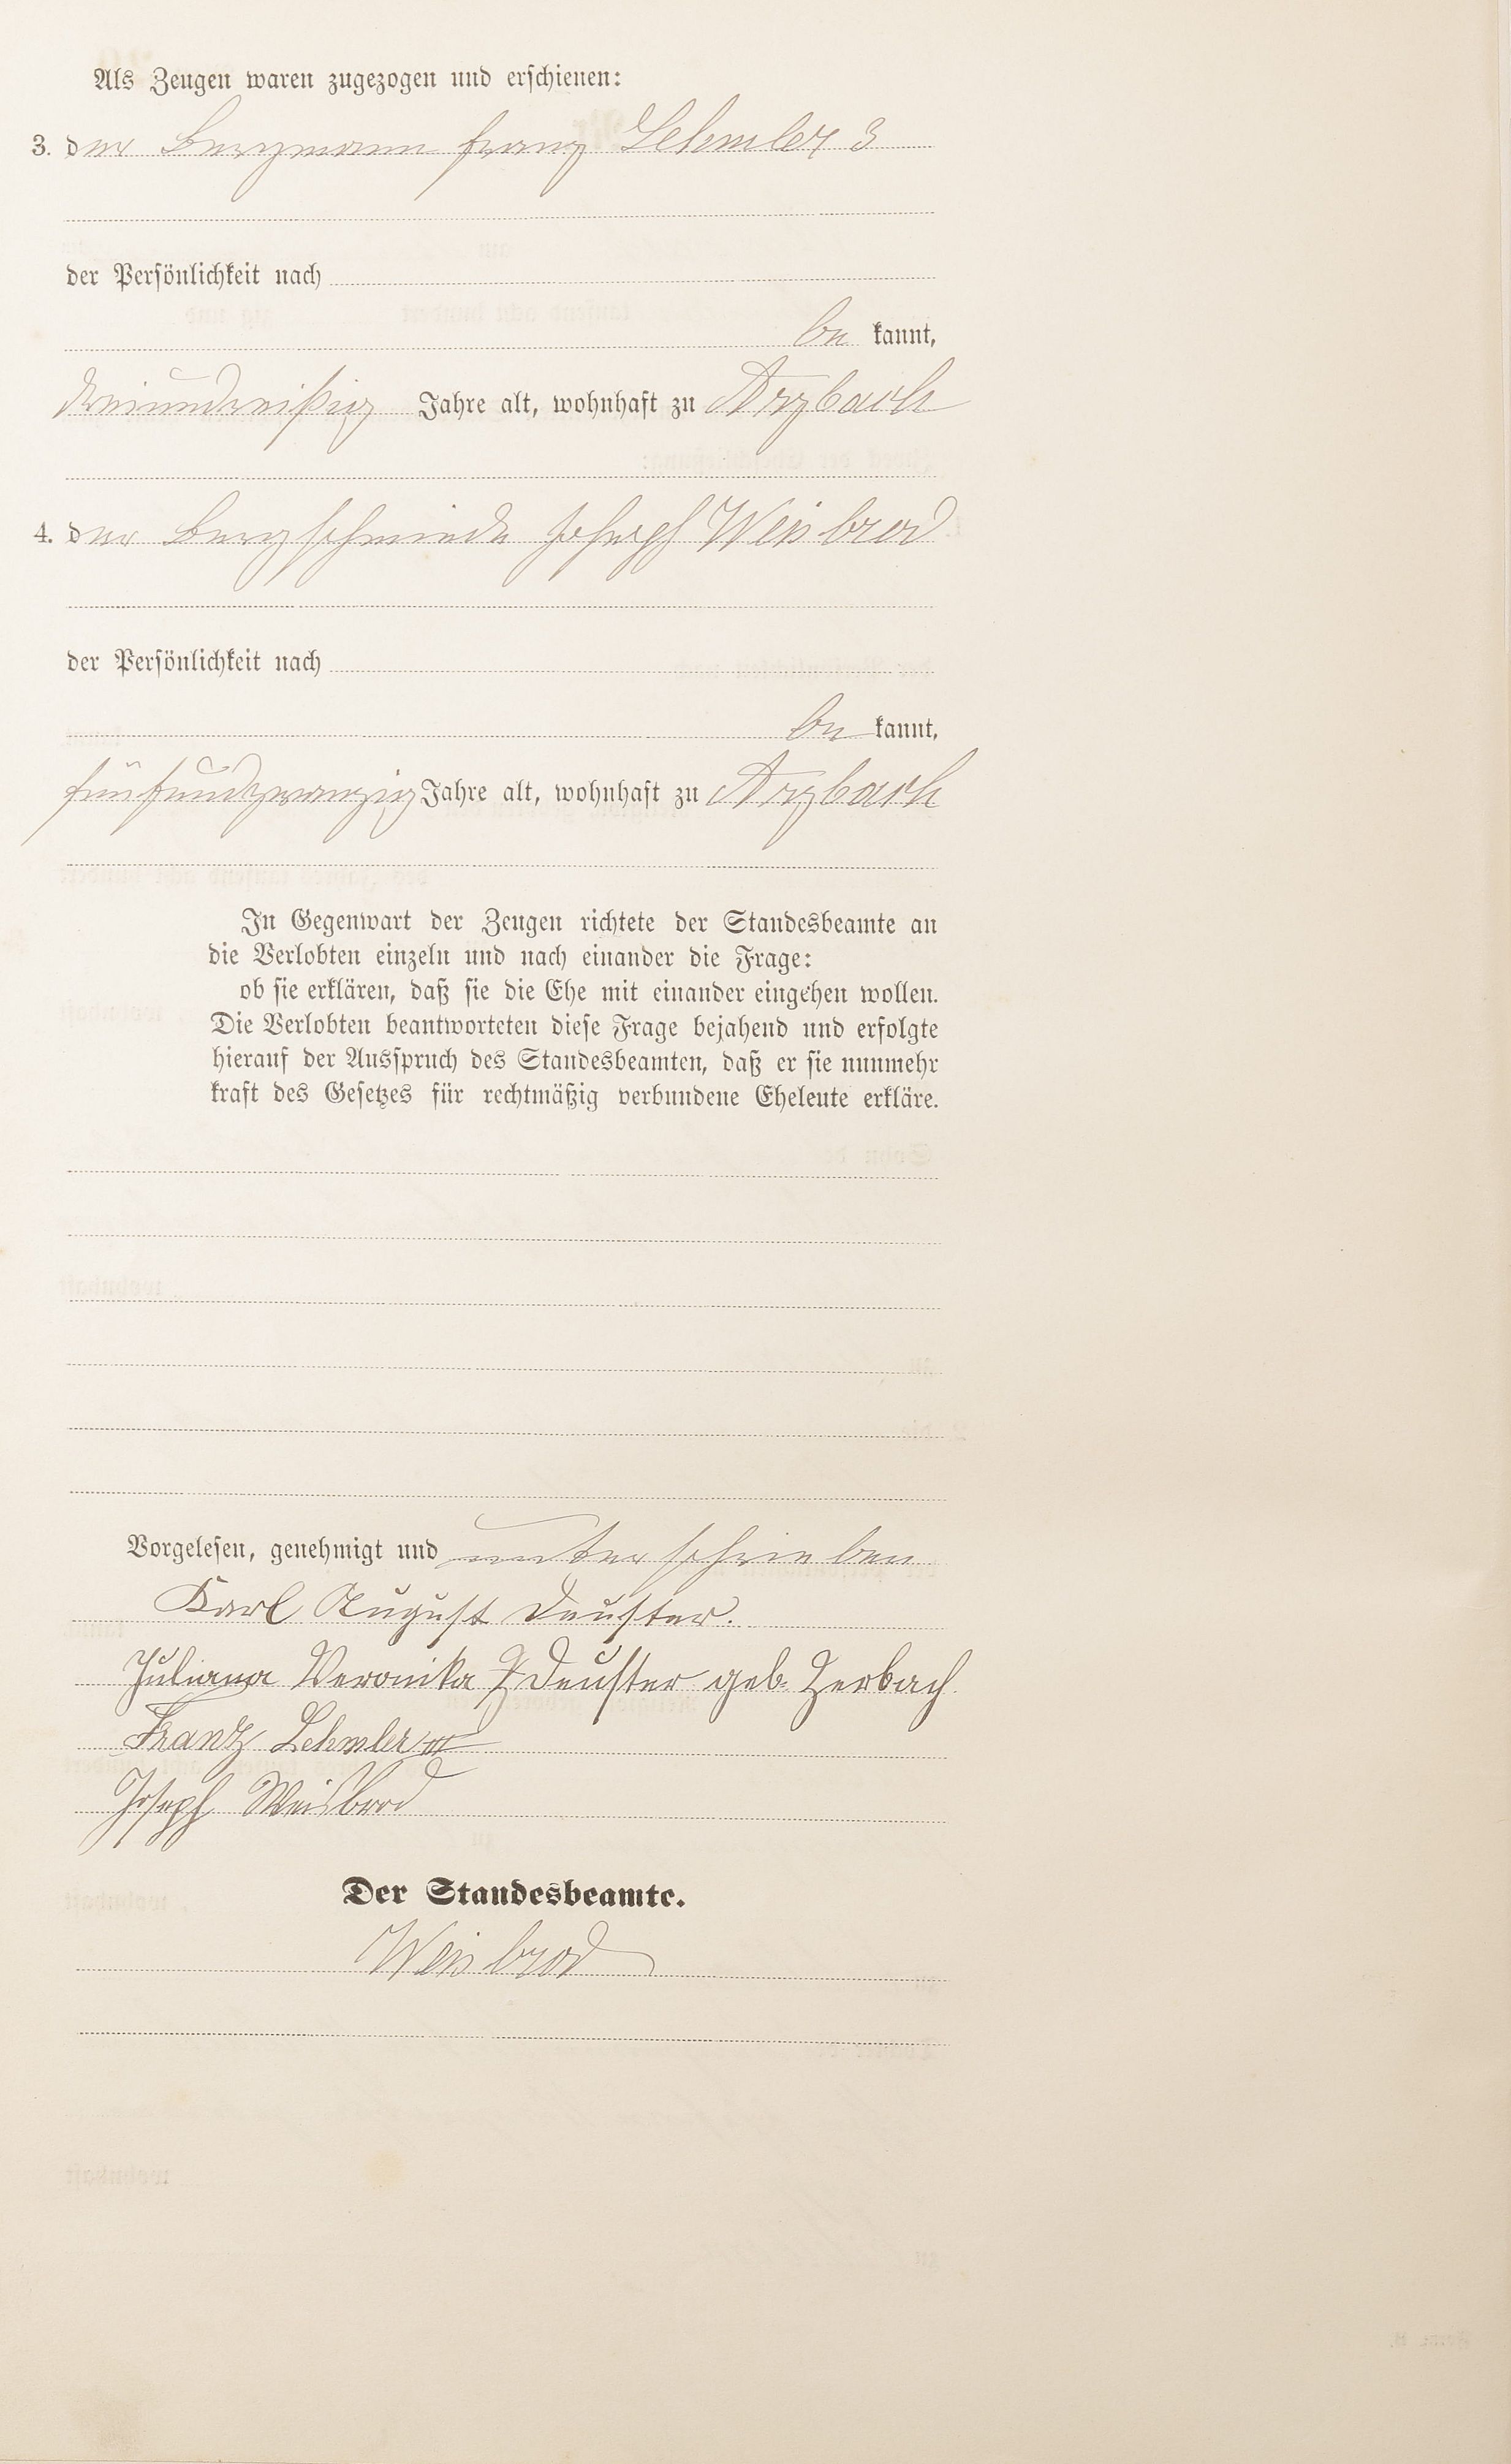 Als Zeugen waren zugezogen und erschienen:
3. der Bergmann Franz Lehmler 3
der Persönlichkeit nach
be kannt,
dreiundreißig Jahre alt, wohnhaft zu Arzbach
4. der Bergschmiede Joseph Weisbrod
der Persönlichkeit nach
be kannt,
fünfundzwanzig Jahre alt, wohnhaft zu Arzbach
In Gegenwart der Zeugen richtete der Standesbeamte an
die Verlobten einzeln und nach einander die Frage:
ob sie erklären, daß sie die Ehe mit einander eingehen wollen.
Die Verlobten beantworteten diese Frage bejahend und erfolgte
hierauf der Ausspruch des Standesbeamten, daß er sie nunmehr
kraft des Gesetzes für rechtmäßig verbundene Eheleute erkläre.
Vorgelesen, genehmigt und unterschrieben
Karl August Deuster.
Juliana Veronika Deuster geb. Zerbach
Franz Lehmler III
Joseph Weisbrod
Der Standesbeamte.
Weisbrod